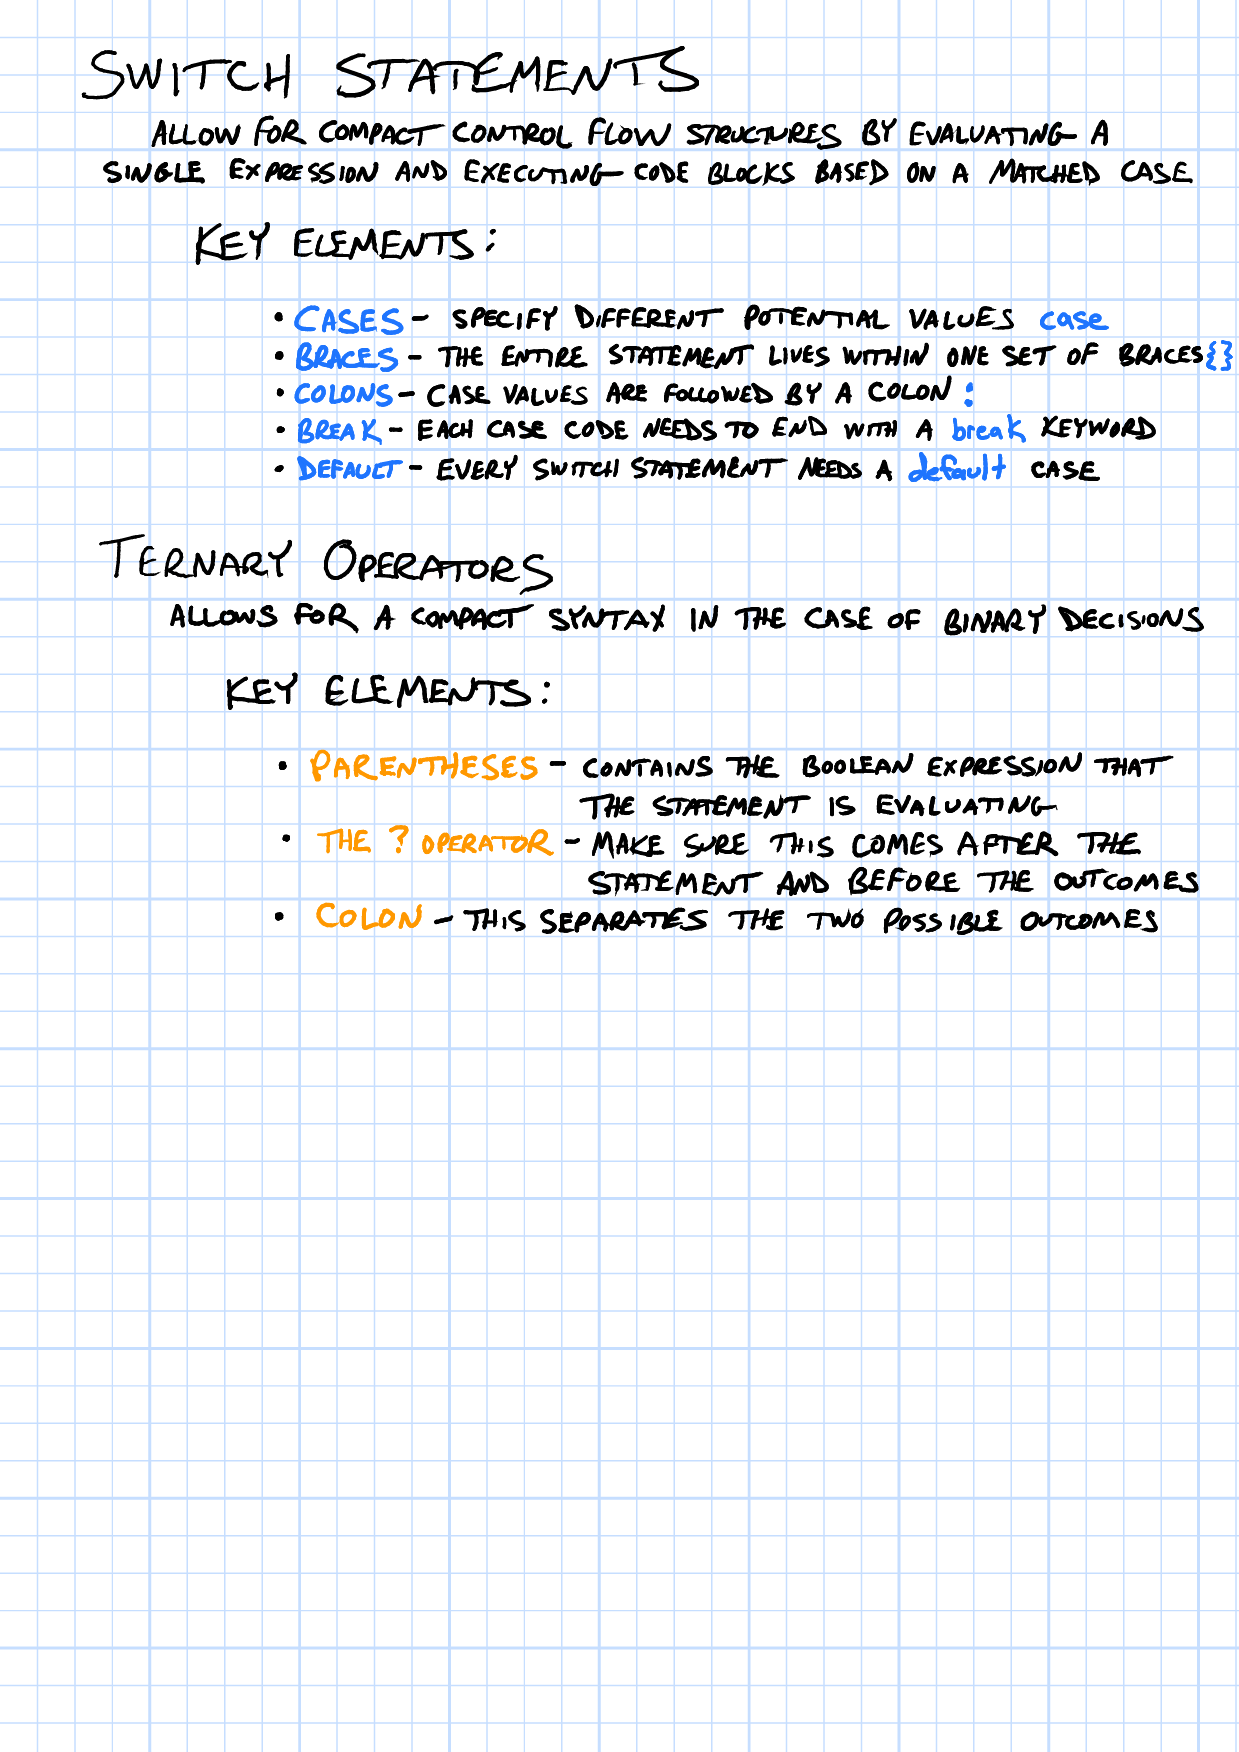 SWITCH STATEMENTS
ALLOW FOR COMPACT CONTROL FLOW STRUCTURES BY EVALUATING A
SINGLE EXPRESSION AND EXECUTING CODE BLOCKS BASED ON A MATCHED CASE
KEY ELEMENTS:
• CASES - SPECIFY DIFFERENT POTENTIAL VALUES case
• BRACES - THE ENTIRE STATEMENT LIVES WITHIN ONE SET OF BRACES {}
• COLONS - CASE VALUES ARE FOLLOWED BY A COLON :
• BREAK - EACH CASE CODE NEEDS TO END WITH A break KEYWORD
• DEFAULT - EVERY SWITCH STATEMENT NEEDS A default CASE
TERNARY OPERATORS
ALLOWS FOR A COMPACT SYNTAX IN THE CASE OF BINARY DECISIONS
KEY ELEMENTS:
• PARENTHESES - CONTAINS THE BOOLEAN EXPRESSION THAT
THE STATEMENT IS EVALUATING
• THE ? OPERATOR - MAKE SURE THIS COMES AFTER THE
STATEMENT AND BEFORE THE OUTCOMES
• COLON - THIS SEPARATES THE TWO POSSIBLE OUTCOMES